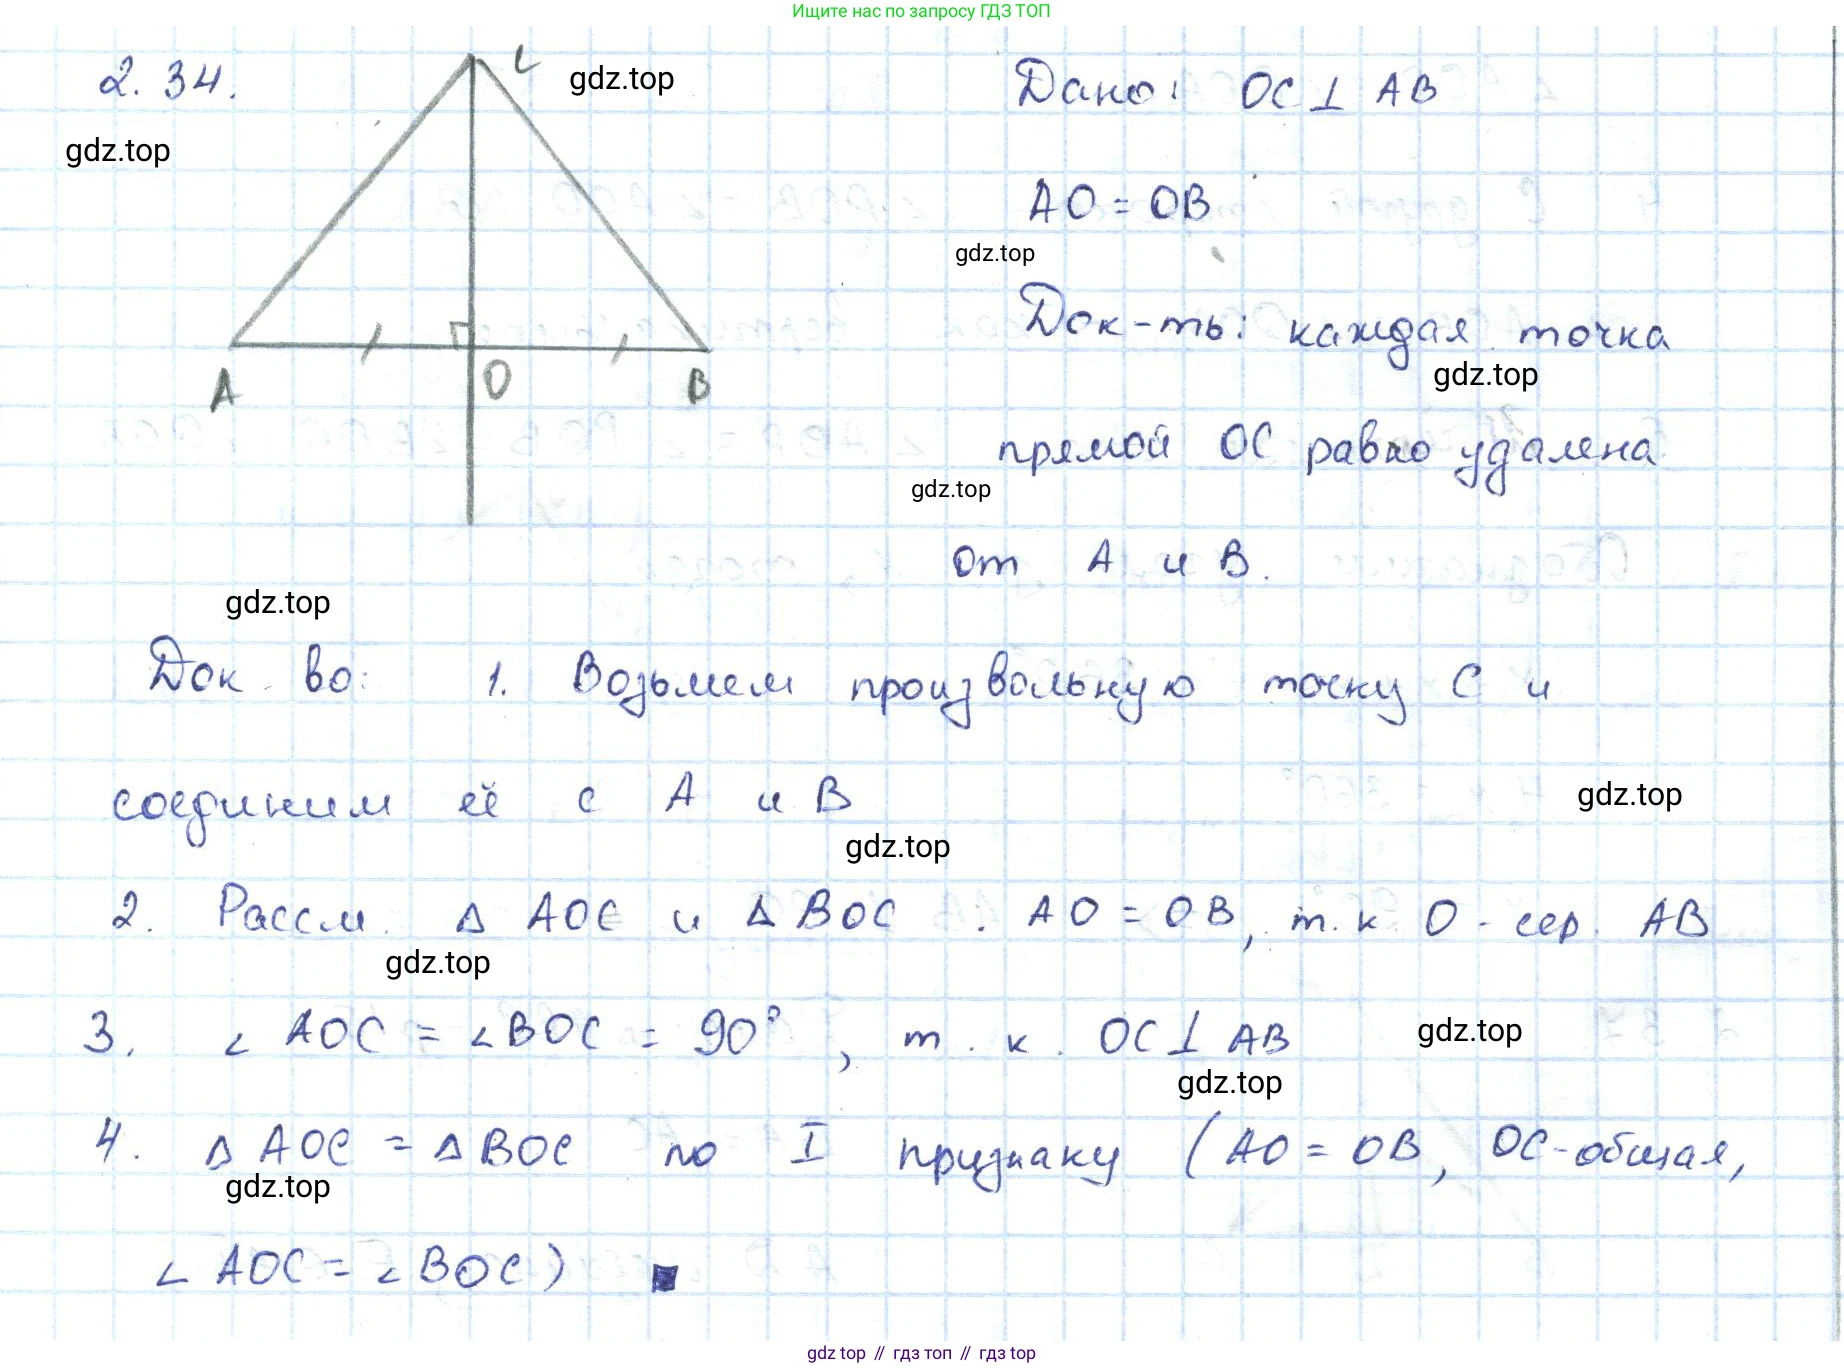 Ищите нас по запросу ГДЗ ТОП
2.34.
C
gdz.top
Дано: OC⊥AB
gdz.top
AO = OB
gdz.top
Док-ть: каждая точка
gdz.top
A O B
прямой OC равно удалена
gdz.top
от A и B.
gdz.top
Док-во: 1. Возьмем произвольную точку C и
соединим её с A и B
gdz.top
gdz.top
2. Рассм. △ AOC и △ BOC. AO = OB, т.к O - сер. AB
gdz.top
3. ∠ AOC = ∠BOC = 90°, т.к. OC⊥AB
gdz.top
gdz.top
4. △ AOC = △ BOC по I признаку (AO = OB, OC-общая,
gdz.top
∠ AOC = ∠BOC)
gdz.top // гдз топ // гдз top